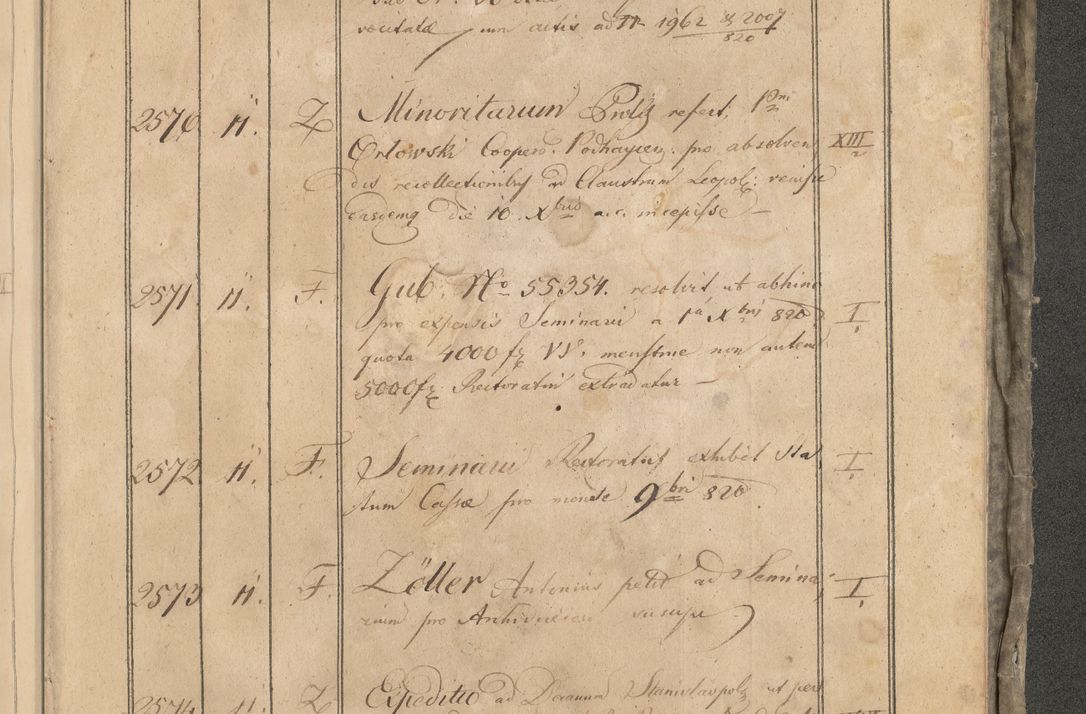 vocitatæ cum actis ad N 1962 & 2007
820
2570 11. Z Minoritarum Prolis refert, Pm
Orlowski Cooper. Podhaycen. pro absolven XIII
dis recollectionibus ad Claustrum Leopol:
easdemq die 10 Xbris a.c. incepisse –
2571 11. F. Gub. No 55354. resolvit ut abhinc
pro expensis Seminarii a 1a Xbris 820 I
quota 4000 f VV. menstrue non autem
5000 f Rectoratui extradatur –
2572 11. F. Seminarii Rectoratus exhibet sta I
tum Cassæ pro mense 9bri 820
2573 11. F. Zöller Antonius petit ad Semina I
rium pro suscipi
2574 11. Z Expeditio ad Decanum Stanislaopol ut per